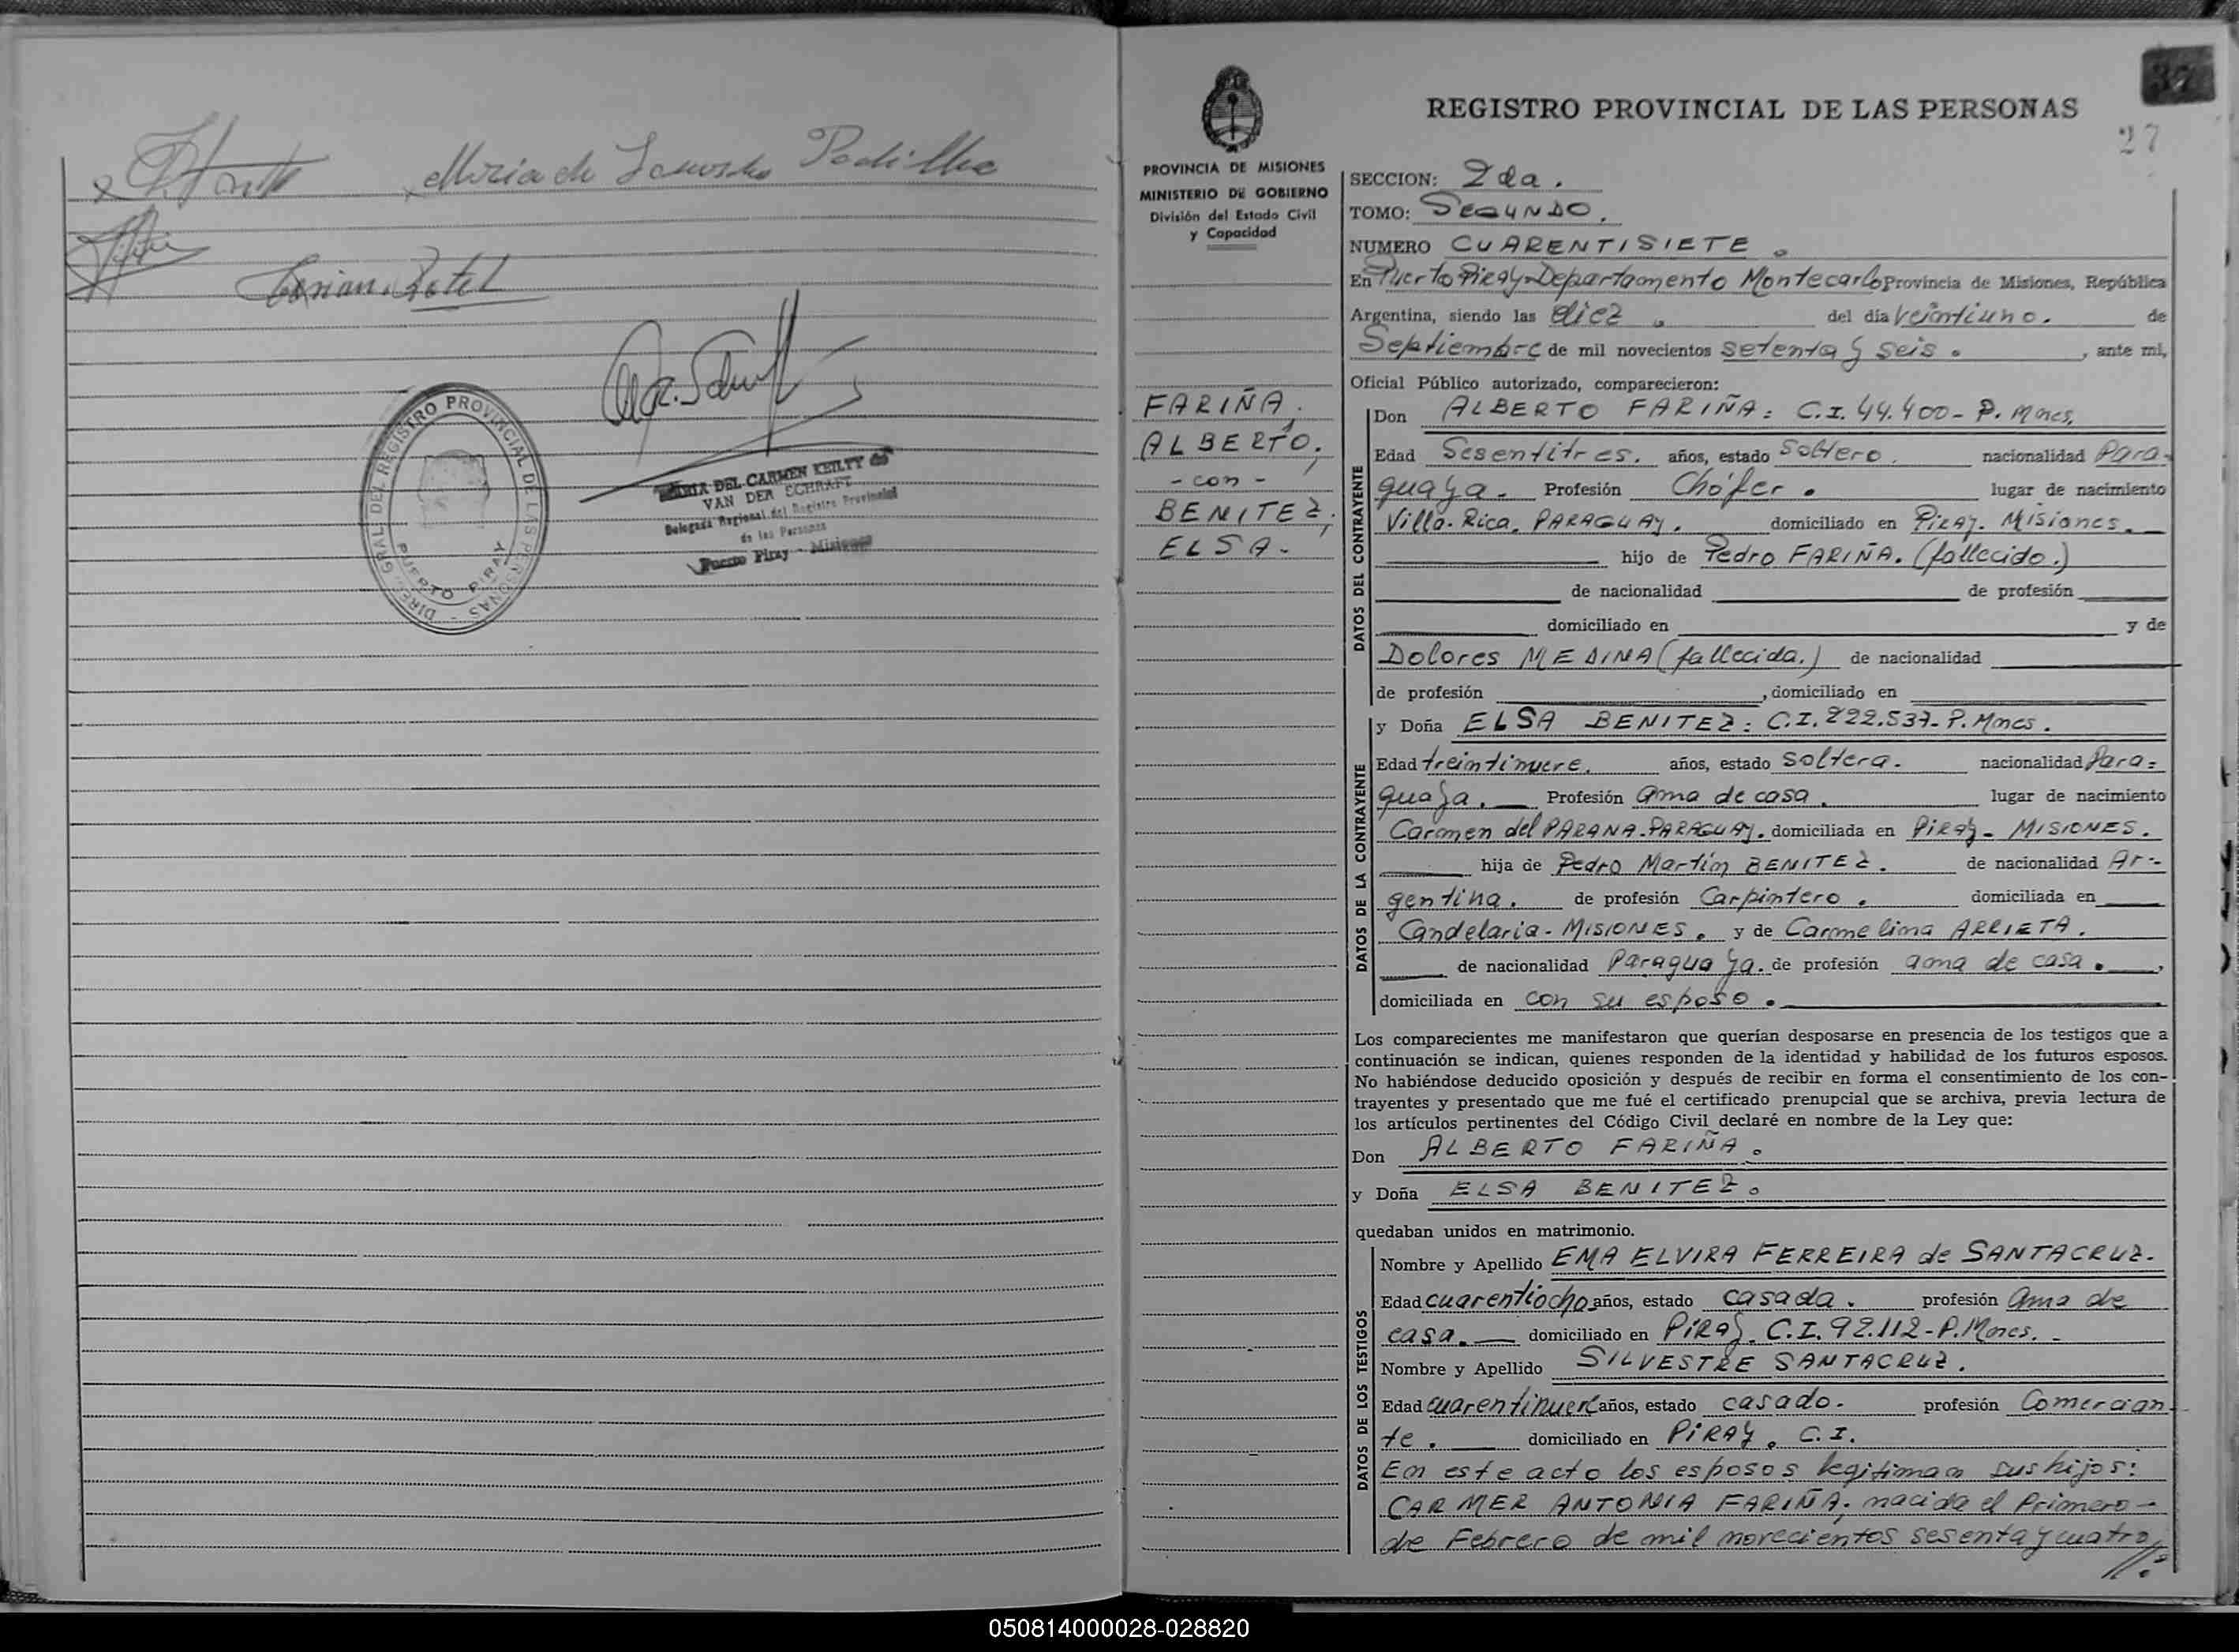 Maria de Padilha
DIREC. GRAL. DEL REGISTRO PROVINCIAL DE LAS PERSONAS
PUERTO PIRAY
MARIA DEL CARMEN KEILTY de
VAN DER SCHRAFT
Delegada Regional del Registro Provincial
de las Personas
Puerto Piray - Misiones
37
REGISTRO PROVINCIAL DE LAS PERSONAS
27
PROVINCIA DE MISIONES
MINISTERIO DE GOBIERNO
División del Estado Civil
y Capacidad
FARIÑA,
ALBERTO,
- con -
BENITEZ,
ELSA.-
SECCION: 2da.
TOMO: SEGUNDO.
NUMERO CUARENTISIETE.
En Puerto Piray-Departamento Montecarlo Provincia de Misiones, República
Argentina, siendo las diez. del día veintiuno. de
Septiembre de mil novecientos setenta y seis. , ante mi,
Oficial Público autorizado, comparecieron:
DATOS DEL CONTRAYENTE
Don ALBERTO FARIÑA: C.I. 44.400- P. Mnes.
Edad Sesentitres. años, estado Soltero. nacionalidad Para-
guaya. Profesión Chófer. lugar de nacimiento
Villa-Rica, PARAGUAY. domiciliado en PIRAY. Misiones.
hijo de Pedro FARIÑA. (fallecido.)
de nacionalidad de profesión
domiciliado en y de
Dolores MEDINA (fallecida.) de nacionalidad
de profesión , domiciliado en
DATOS DE LA CONTRAYENTE
y Doña ELSA BENITEZ: C.I. 222.537- P. Mnes.
Edad treintinueve. años, estado soltera. nacionalidad Para-
guaya. Profesión ama de casa. lugar de nacimiento
Carmen del PARANA-PARAGUAY. domiciliada en Piray- MISIONES.
hija de Pedro Martín BENITEZ. de nacionalidad Ar-
gentina. de profesión Carpintero. domiciliada en
Candelaria- MISIONES. y de Carmelina ARRIETA.
de nacionalidad Paraguaya. de profesión ama de casa. ,
domiciliada en con su esposo.
Los comparecientes me manifestaron que querían desposarse en presencia de los testigos que a
continuación se indican, quienes responden de la identidad y habilidad de los futuros esposos.
No habiéndose deducido oposición y después de recibir en forma el consentimiento de los con-
trayentes y presentado que me fué el certificado prenupcial que se archiva, previa lectura de
los artículos pertinentes del Código Civil declaré en nombre de la Ley que:
Don ALBERTO FARIÑA.
y Doña ELSA BENITEZ.
quedaban unidos en matrimonio.
DATOS DE LOS TESTIGOS
Nombre y Apellido EMA ELVIRA FERREIRA de SANTACRUZ.
Edad cuarentiocho años, estado casada. profesión ama de
casa. domiciliado en PIRAY. C.I. 92.112-P.Mnes.-
Nombre y Apellido SILVESTRE SANTACRUZ.
Edad cuarentinueve años, estado casado. profesión Comercian
te. domiciliado en PIRAY. C.I.
En este acto los esposos legitiman sus hijos:
CARMER ANTONIA FARIÑA; nacida el Primero-
de Febrero de mil novecientos sesenta y cuatro,
//.
050814000028-028820